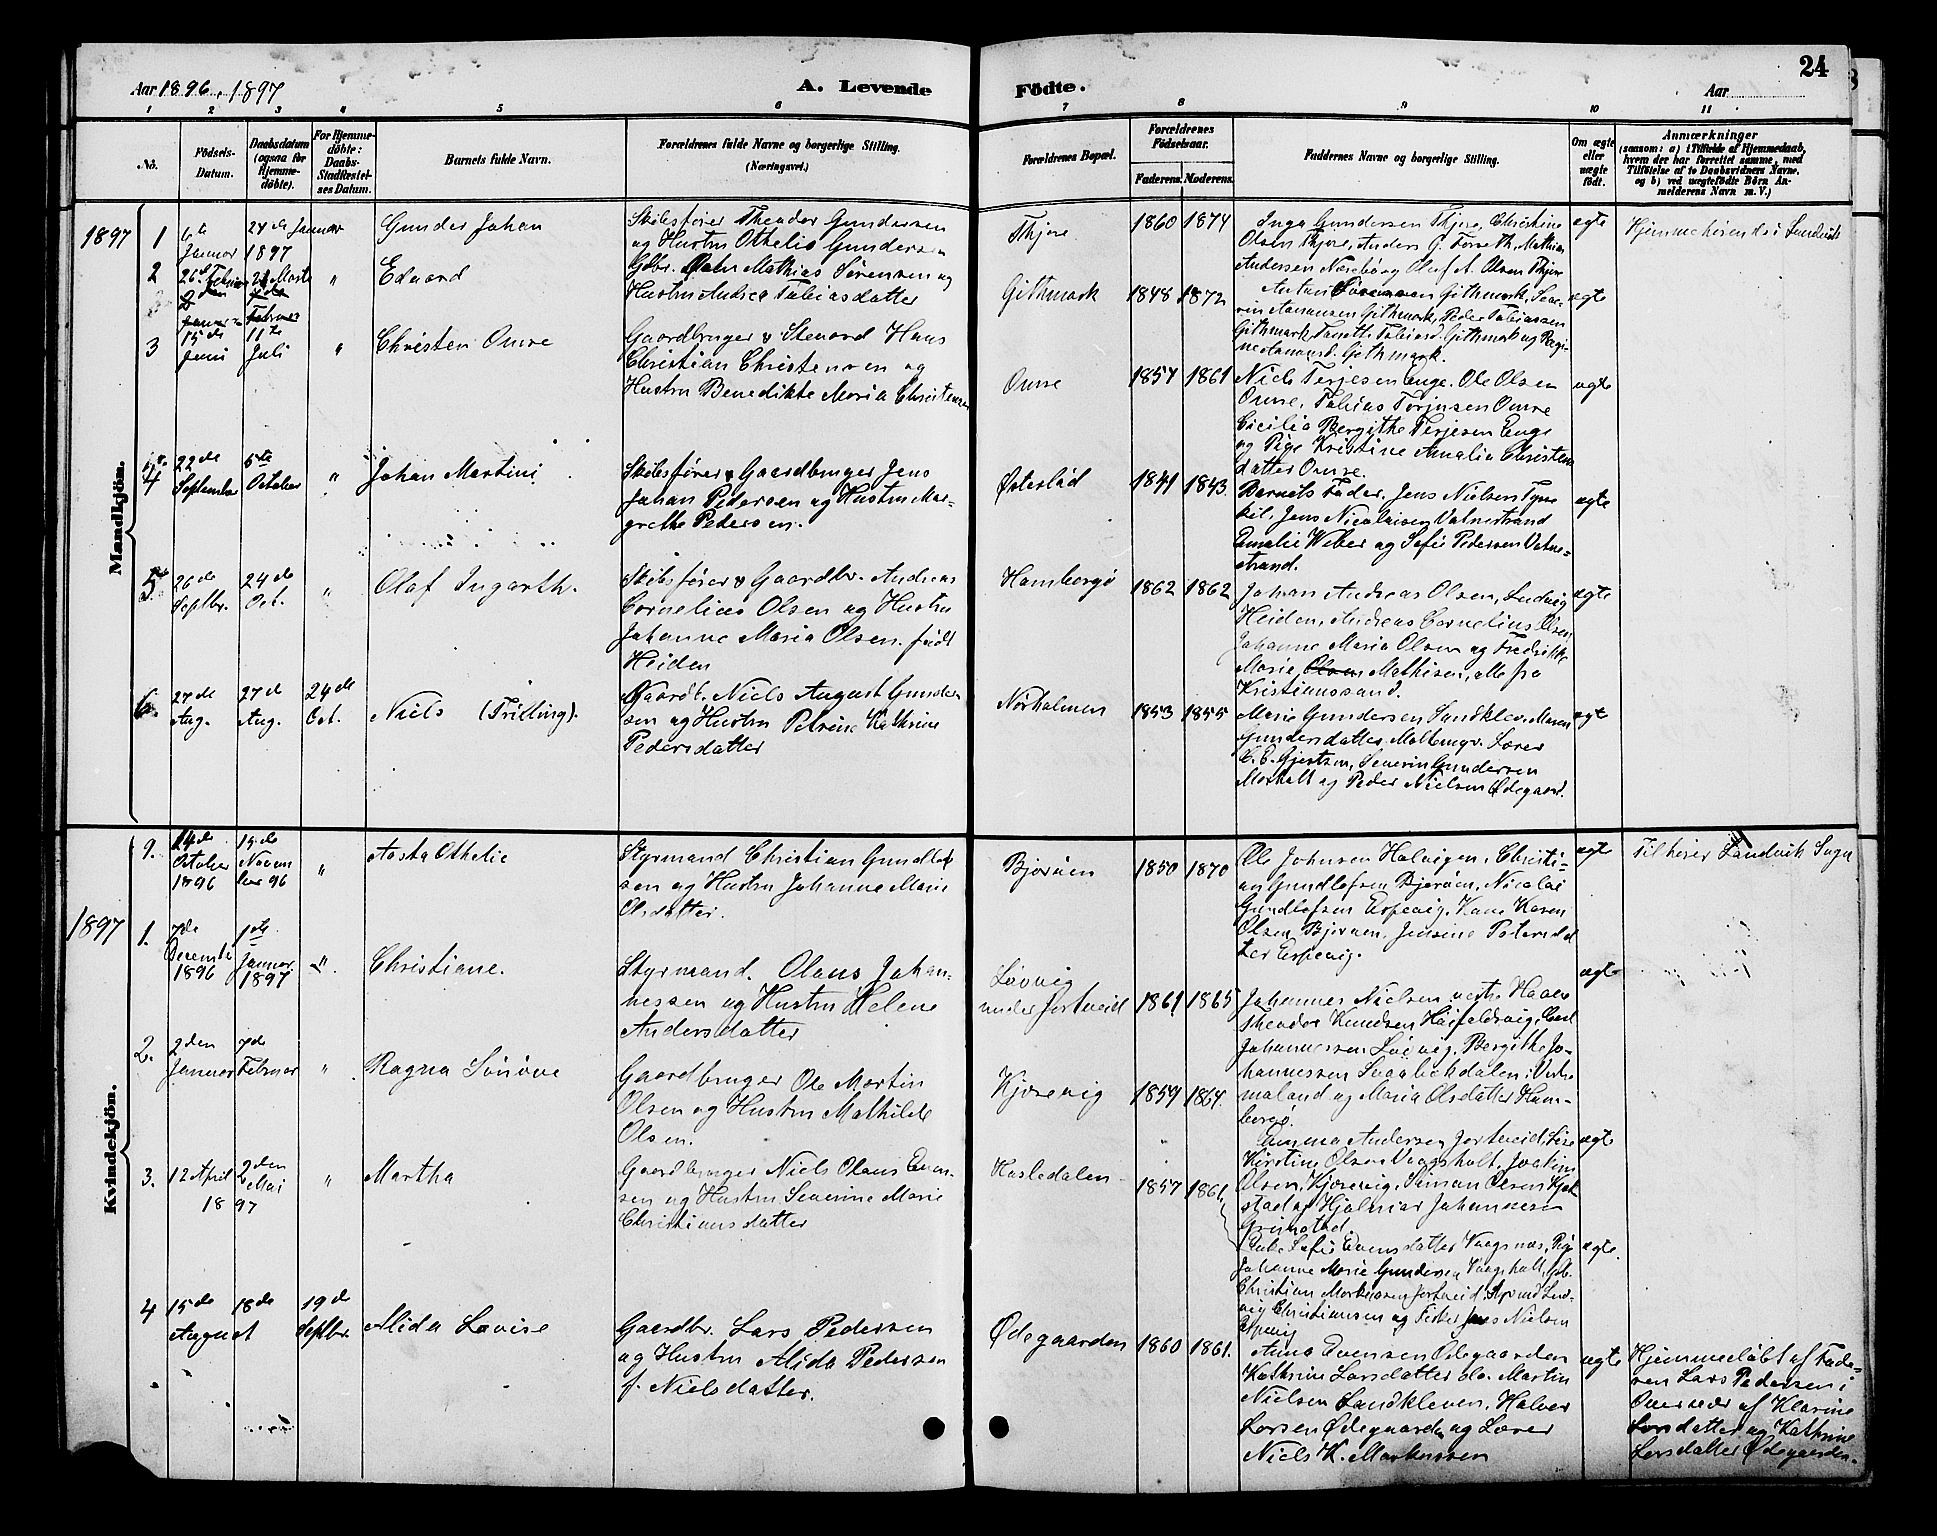 24
Aar 1896, 1897
A. Levende
Födte.
Aar
1 2 3 4 5 6 7 8 9 10 11
No.
Födsels-
Datum.
Daabsdatum
(ogsaa for
Hjemme-
döbte).
For Hjemme-
döbte:
Daabs-
Stadfæstel-
ses Datum.
Barnets fulde Navn.
Forældrenes fulde Navne og borgerlige Stilling.
(Næringsvei.)
Forældrenes Bopæl.
Forældrenes
Födselsaar.
Faderens. Moderens.
Faddernes Navne og borgerlige Stilling.
Om ægte
eller
uægte
födt.
Anmærkninger
(saasom: a) i Tilfælde af Hjemmedaab,
hvem der har forrettet samme, med
Tilföielse af to Daabsvidners Navne,
og b) ved uægtefödte Börn An-
melderens Navn m. V.)
Mandkjön.
1897
1
6te
Januar
24de Januar
1897
Gunder Johan
Skibsfører Theodor Gundersen
og Hustru Othelie Gundersen
Thjore
1860 1874
Inga Gundersen Thjore, Christine
Olsen Thjore, Anders G. Forseth, Mathias
Andersen og Oluf A. Olsen Thjore
ægte
Hjemmehørende i Landvik
2
26d Februar
21 Marts
"
Edvard
Gdbr. Mathias Sørensen og
Hustru Andrea Tobiasdatter
Githmark
1848 1872
Githmark, Peder Tobiassen
Githmark
Githmark.
ægte
3
15de
Juni
11te
Juli
"
Christen Omre
Gaardbruger & Hans
Christian Christensen og
Hustru Benedikte Maria Christensen
Omre
1857 1861
Niels Terjesen Enge. Ole Olsen
Omre, Tobias Terjesen Omre
Cicilia Bergithe Terjesen Enge
og Pige Kristine Amalia Christens
datter Omre.
ægte
4
22de
Septembe
5te
October
"
Johan Martini
Skibsfører & Gaardbruger Jens
Johan Pedersen og Hustru Mar-
grethe Pedersen.
Østerslød
1841 1843.
Barnets Fader. Jens Nielsen
Jens Nicolaisen Vatnestrand
Amalie Weber og Sofie Pedersen Vatne-
strand.
ægte
5
26de
Septbr.
24de
Oct.
"
Olaf Ingarth.
Skibsfører & Gaardbr. Andreas
Cornelius Olsen og Hustru
Johanne Maria Olsen. født
Heiden
Homborgø
1862 1862
Johan Andreas Olsen, Ludvig
Heiden, Andreas Cornelius Olsen
Johanne Maria Olsen og Fredrikke
Marie Mathisen, alle fra
Kristianssand.
ægte
6.
27de
Aug.
27de
Aug.
24de
Oct.
Niels (Trilling).
Gaardb. Niels August Gunder
sen og Hustru Petrine Kathrine
Pedersdatter
Nørholmen
1853 1855
Marie Gundersen Sandklev. Maren
Gundersdatter
C. E. Gjertsen, Severin Gundersen
og Peder Nielsen Ødegaard.
ægte
Kvindekjön.
9.
14de
October
1896
15de
Novem
ber 96
"
Aasta Othelie
Styrmand Christian Gundlof
sen og Hustru Johanne Marie
Olsdatter.
Bjørøen
1850 1870
Ole Johnsen Halvigen, Christi-
an Gundlofsen Bjørøen, Nicolai
Gundlofsen Espevig. Kone Karen
Olsen Bjørøen, Jensine Petersdat
ter Espevig.
ægte
Tilhører Landvik Sogn
1897
1.
7de
Decembe
1896
1ste
Januar
1897
"
Christiane.
Styrmand. Olaus Johan-
nessen og Hustru Helene
Andersdatter
Løvvig
under Jortveid
1861 1865
Johannes Nielsen
Theodor Knudsen
Johannessen Løvvig, Bergithe Jo-
hannessen i Vestre
maland og Maria Olsdatter Hom-
borgø.
ægte
2.
2den
Januar
7de
Februar
"
Ragna Sønøve
Gaardbruger Ole Martin
Olsen og Hustru Mathilde
Olsen.
Kjærevig
1859 1864.
Emma Andersen Jortveid, Lise
Kirstine Olsen Vaagsholt, Joakim
Olsen, Kjærevig, Simon Olsen
og Hjalmar Johannesen
Grimstad
ægte
3.
12 April
1897
2den
Mai
"
Martha
Gaardbruger Niels Olaus Even-
sen og Hustru Severine Marie
Christiansdatter
Hasledalen
1857 1861
Sofie Evensdatter Vaagsnes, Pige
Johanne Marie Gundersen Vaagsholt,
Christian Jortveid,
Christiansen og Jens Nielsen
ægte.
4
15de
August
18de
19de
Septbr.
Alida Lovise
Gaardbr. Lars Pedersen
og Hustru Alida Pedersen
f. Nielsdatter.
Ødegaarden
1860 1861.
Anna Evensen Ødegaarden
Kathrine Larsdatter do. Martin
Nielsen Sandkleven, Halvor
Larsen Ødegaarden og Lærer
Niels K. Markussen
ægte
Hjemmedøbt af Fade-
ren Lars Pedersen i
Overvær af Klarine
Larsdatter og Kathrine
Larsdatter Ødegaarden.